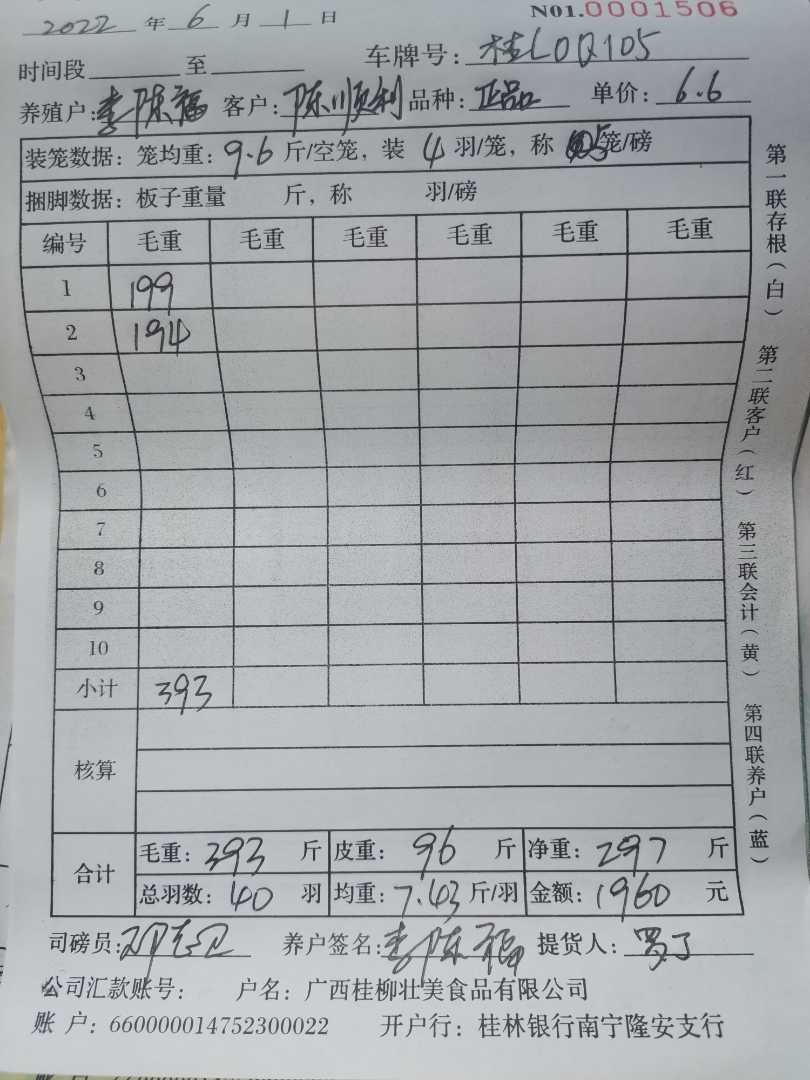 2022 年 6 月 1 日 NO1.0001506
时间段 至 车牌号: 桂L0Q105
养殖户: 李陈福 客户: 陈顺利 品种: 正品 单价: 6.6
装笼数据: 笼均重: 9.6 斤/空笼, 装 4 羽/笼, 称 5 笼/磅
捆脚数据: 板子重量 斤, 称 羽/磅
编号 毛重 毛重 毛重 毛重 毛重 毛重
1 199
2 194
3
4
5
6
7
8
9
10
小计 393
核算
合计 毛重: 393 斤 皮重: 96 斤 净重: 297 斤
总羽数: 40 羽 均重: 7.43 斤/羽 金额: 1960 元
司磅员: 养户签名: 李陈福 提货人:
公司汇款账号: 户名: 广西桂柳壮美食品有限公司
账 户: 660000014752300022 开户行: 桂林银行南宁隆安支行
第一联存根(白) 第二联客户(红) 第三联会计(黄) 第四联养户(蓝)